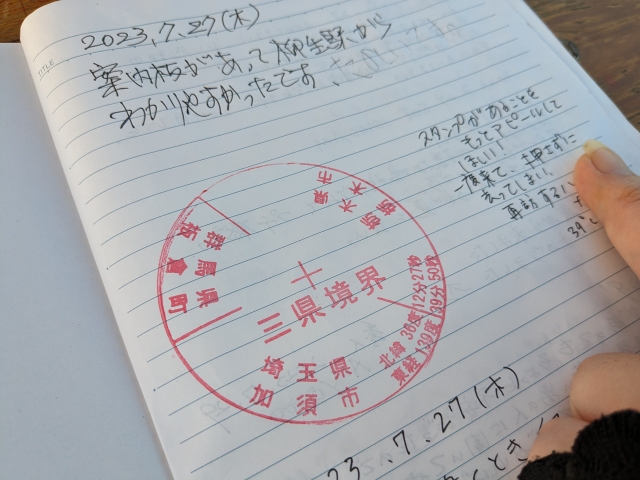 2023.7.27(木)
TITLE
案内板があって柳生駅から
わかりやすかったです
スタンプがあることを
もっとアピールして
ほしい!
一度来て、押さずに
再訪する
栃木県
栃木市
群馬県
板倉町
三県境界
北緯 36度12分27秒
東経 139度39分50秒
埼玉県
加須市
23.7.27(木)